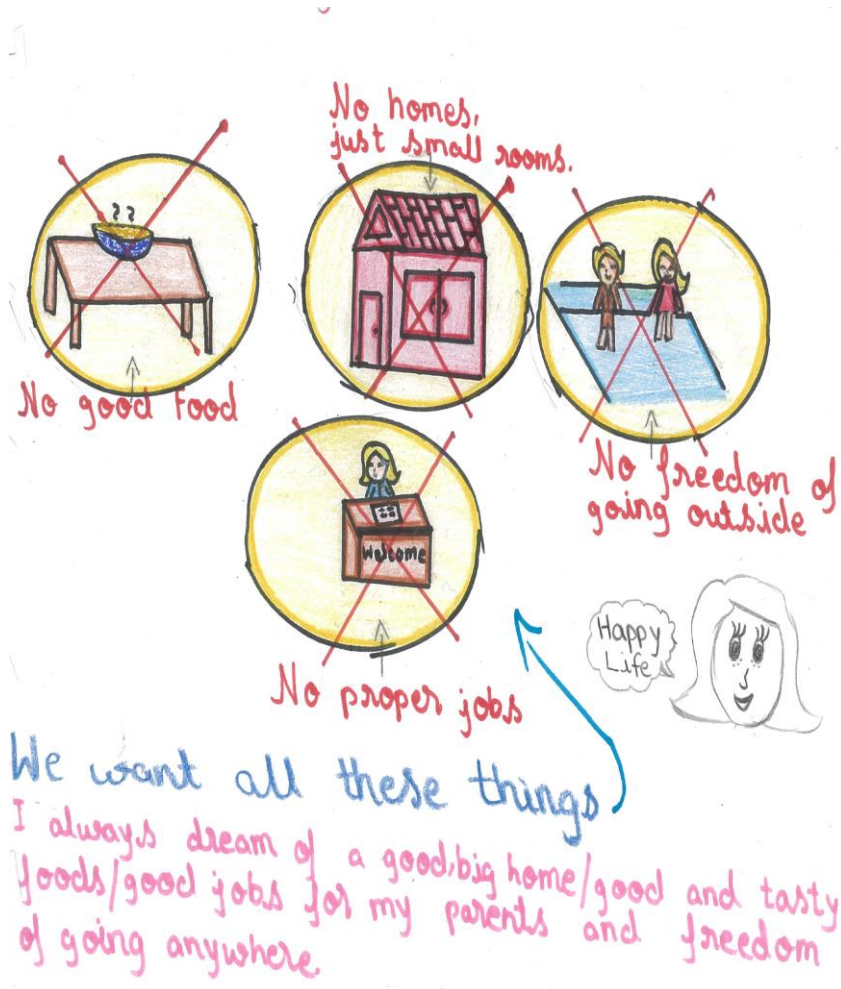 No homes,
just small rooms.
No good food
No freedom of
going outside
Welcome
No proper jobs
Happy
Life
We want all these things
I always dream of a good,big home/good and tasty
foods/good jobs for my parents and freedom
of going anywhere.